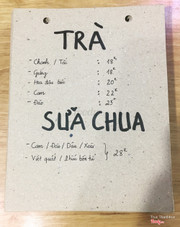 TRÀ
- Chanh / Tắc : 18K
- Gừng : 18K
- Hoa đậu biếc : 20K
- Cam : 22K
- Đào : 25K
SỮA CHUA
- Cam / Dâu / Dừa / Xoài
- Việt quất / 28K